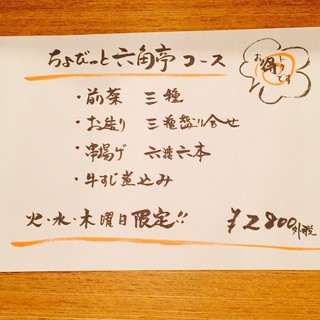 ちょびっと六角亭コース
お得です
・前菜 三種
・お造り 三種盛り合せ
・串揚げ 六種六本
・牛すじ煮込み
火・水・木曜日限定!!
¥2800外税